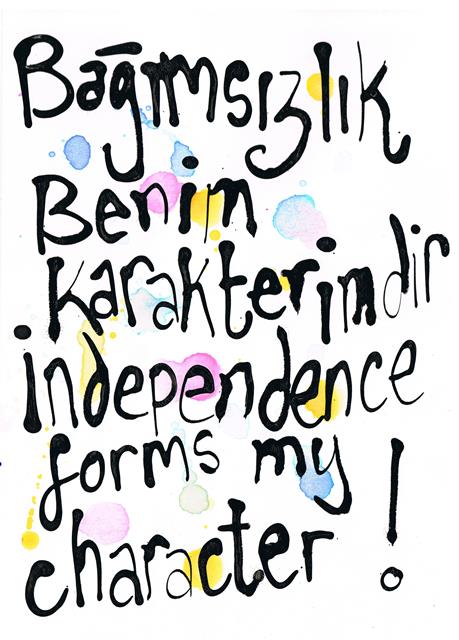 Bağımsızlık
Benim
karakterimdir
independence
forms my
character !